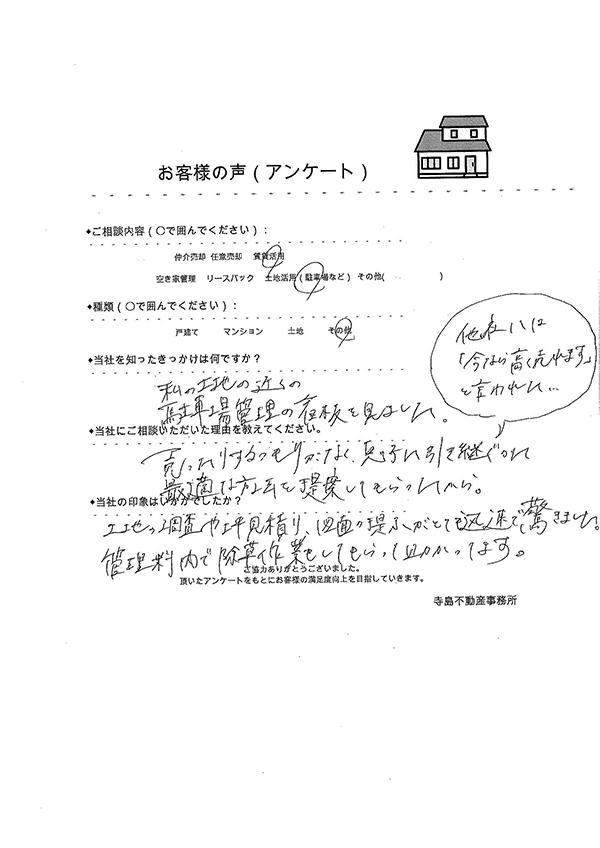 お客様の声(アンケート)
◆ご相談内容(○で囲んでください):
仲介売却 任意売却 賃貸活用
空き家管理 リースバック 土地活用(駐車場など) その他( )
◆種類(○で囲んでください):
戸建て マンション 土地 その他
◆当社を知ったきっかけは何ですか?
私の土地の近くの
駐車場管理の看板を見ました。
他社には
「今なら高く売れます」
と言われた…
◆当社にご相談いただいた理由を教えてください。
売ったりするつもりがなく、息子に引き継ぐので
最適な方法を提案してもらったから。
◆当社の印象はいかがでしたか?
土地の調査や見積り、図面の提示がとても迅速で驚きました。
管理料内で除草作業もしてもらって助かってます。
ご協力ありがとうございました。
頂いたアンケートをもとにお客様の満足度向上を目指していきます。
寺島不動産事務所